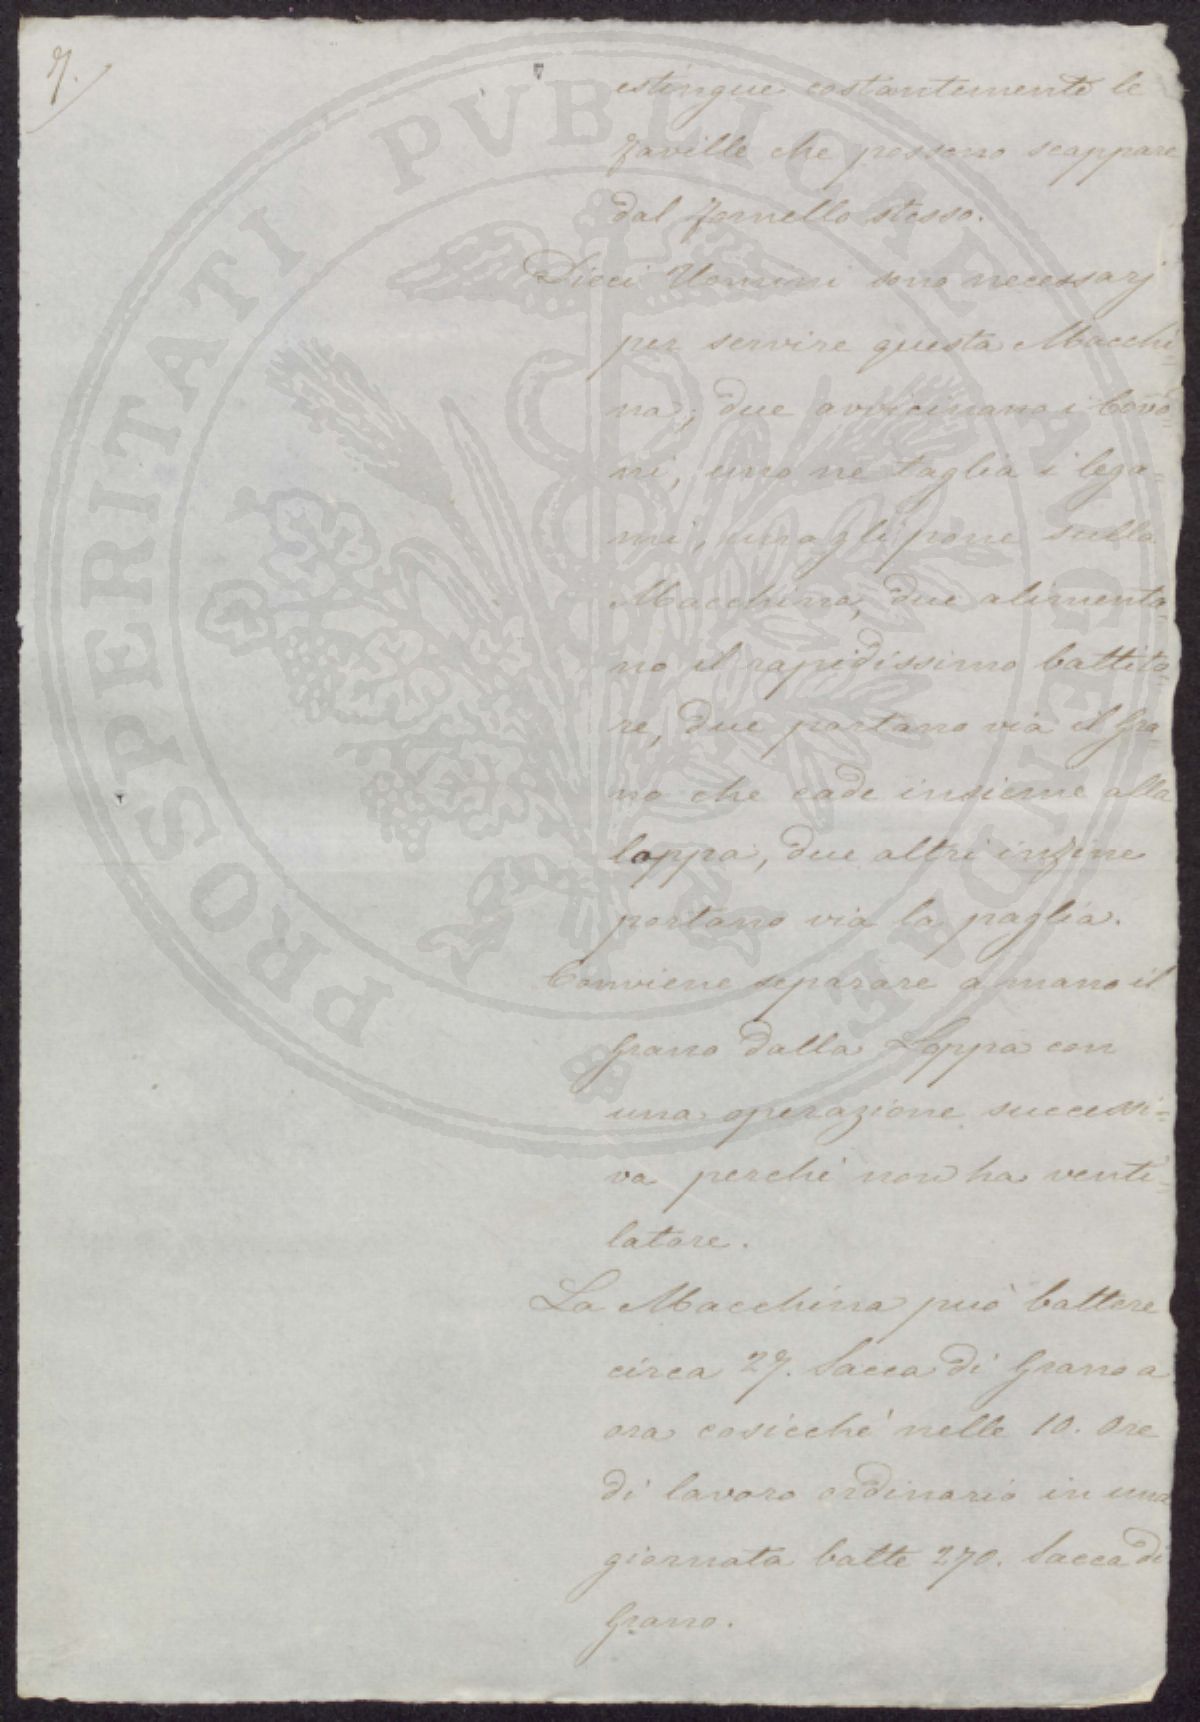 7.
estingue costantemente le
faville che possono scappare
dal fornello stesso.
Dieci Uomini sono necessarj
per servire questa Macchi=
na; due avvicinano i Covo=
ni, uno ne taglia i lega=
mi, uno gli pone sulla
Macchina, due alimenta=
no il rapidissimo battito=
re, due portano via il Gra=
no che cade insieme alla
loppa, due altri infine
portano via la paglia.
Conviene separare a mano il
Grano dalla Loppa con
una operazione successi=
va perchè non ha venti=
latore.
La Macchina può battere
circa 27. Sacca di Grano a
ora cosicchè nelle 10. Ore
di lavoro ordinario in una
giornata batte 270. Sacca di
Grano.
PROSPERITATI PVBLICAE AVGENDAE